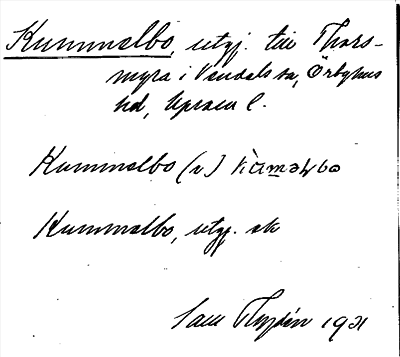 Kummelbo, utgj. till Thors-
myra i Vendels sn, Örbyhus
hd, Upsala l.
Kummelbo (n)
Kummelbo, utgj. ek
Sam Flygdén 1921